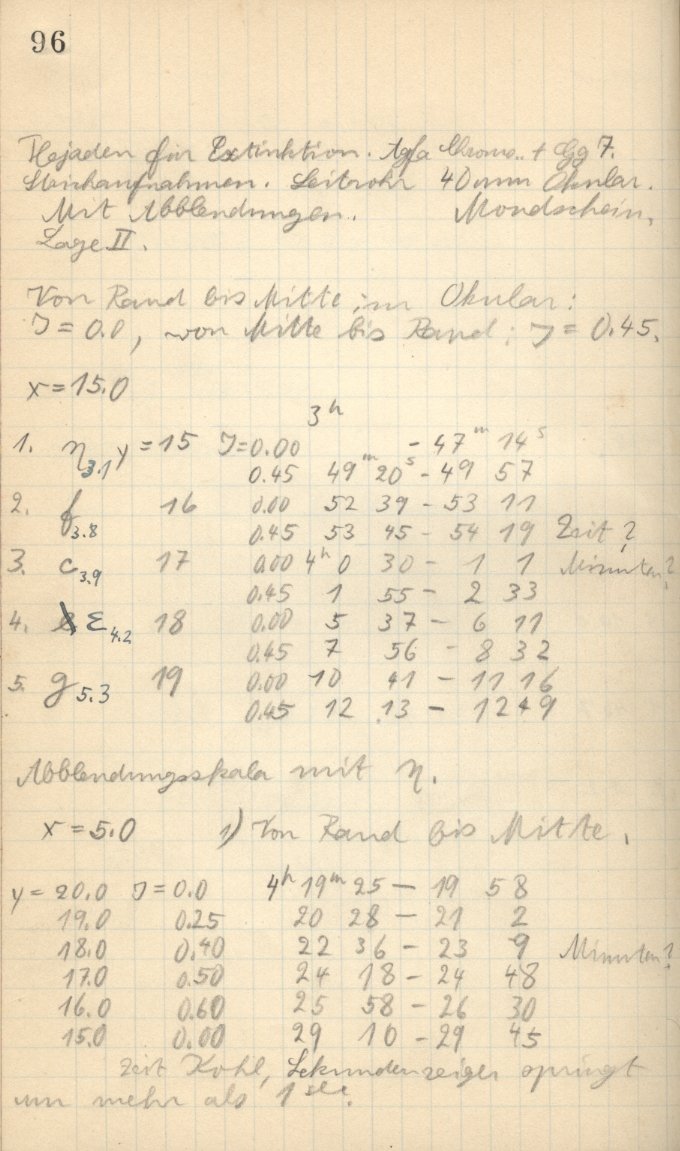 96
Plejaden für Extinktion. Agfa Chromo.. + Gg 7.
Strichaufnahmen. Leitrohr 40 mm Okular.
Mit Abblendungen. Mondschein.
Lage II.
Von Rand bis Mitte im Okular:
J = 0.0, von Mitte bis Rand: J = 0.45.
x = 15.0
3h
1. η3.1 y = 15 J = 0.00 - 47m 14s
0.45 49m 20s - 49 57
2. f3.8 16 0.00 52 39 - 53 11
0.45 53 45 - 54 19 Zeit?
3. c3.9 17 0.00 4h 0 30 - 1 1 Minuten?
0.45 1 55 - 2 33
4. ε4.2 18 0.00 5 37 - 6 11
0.45 7 56 - 8 32
5. g5.3 19 0.00 10 41 - 11 16
0.45 12 13 - 12 49
Abblendungsskala mit η.
x = 5.0 1) Von Rand bis Mitte.
y = 20.0 J = 0.0 4h 19m 25 - 19 58
19.0 0.25 20 28 - 21 2
18.0 0.40 22 36 - 23 9 Minuten?
17.0 0.50 24 18 - 24 48
16.0 0.60 25 58 - 26 30
15.0 0.00 29 10 - 29 45
Zeit Kohl, Sekundenzeiger springt
um mehr als 1 sec.